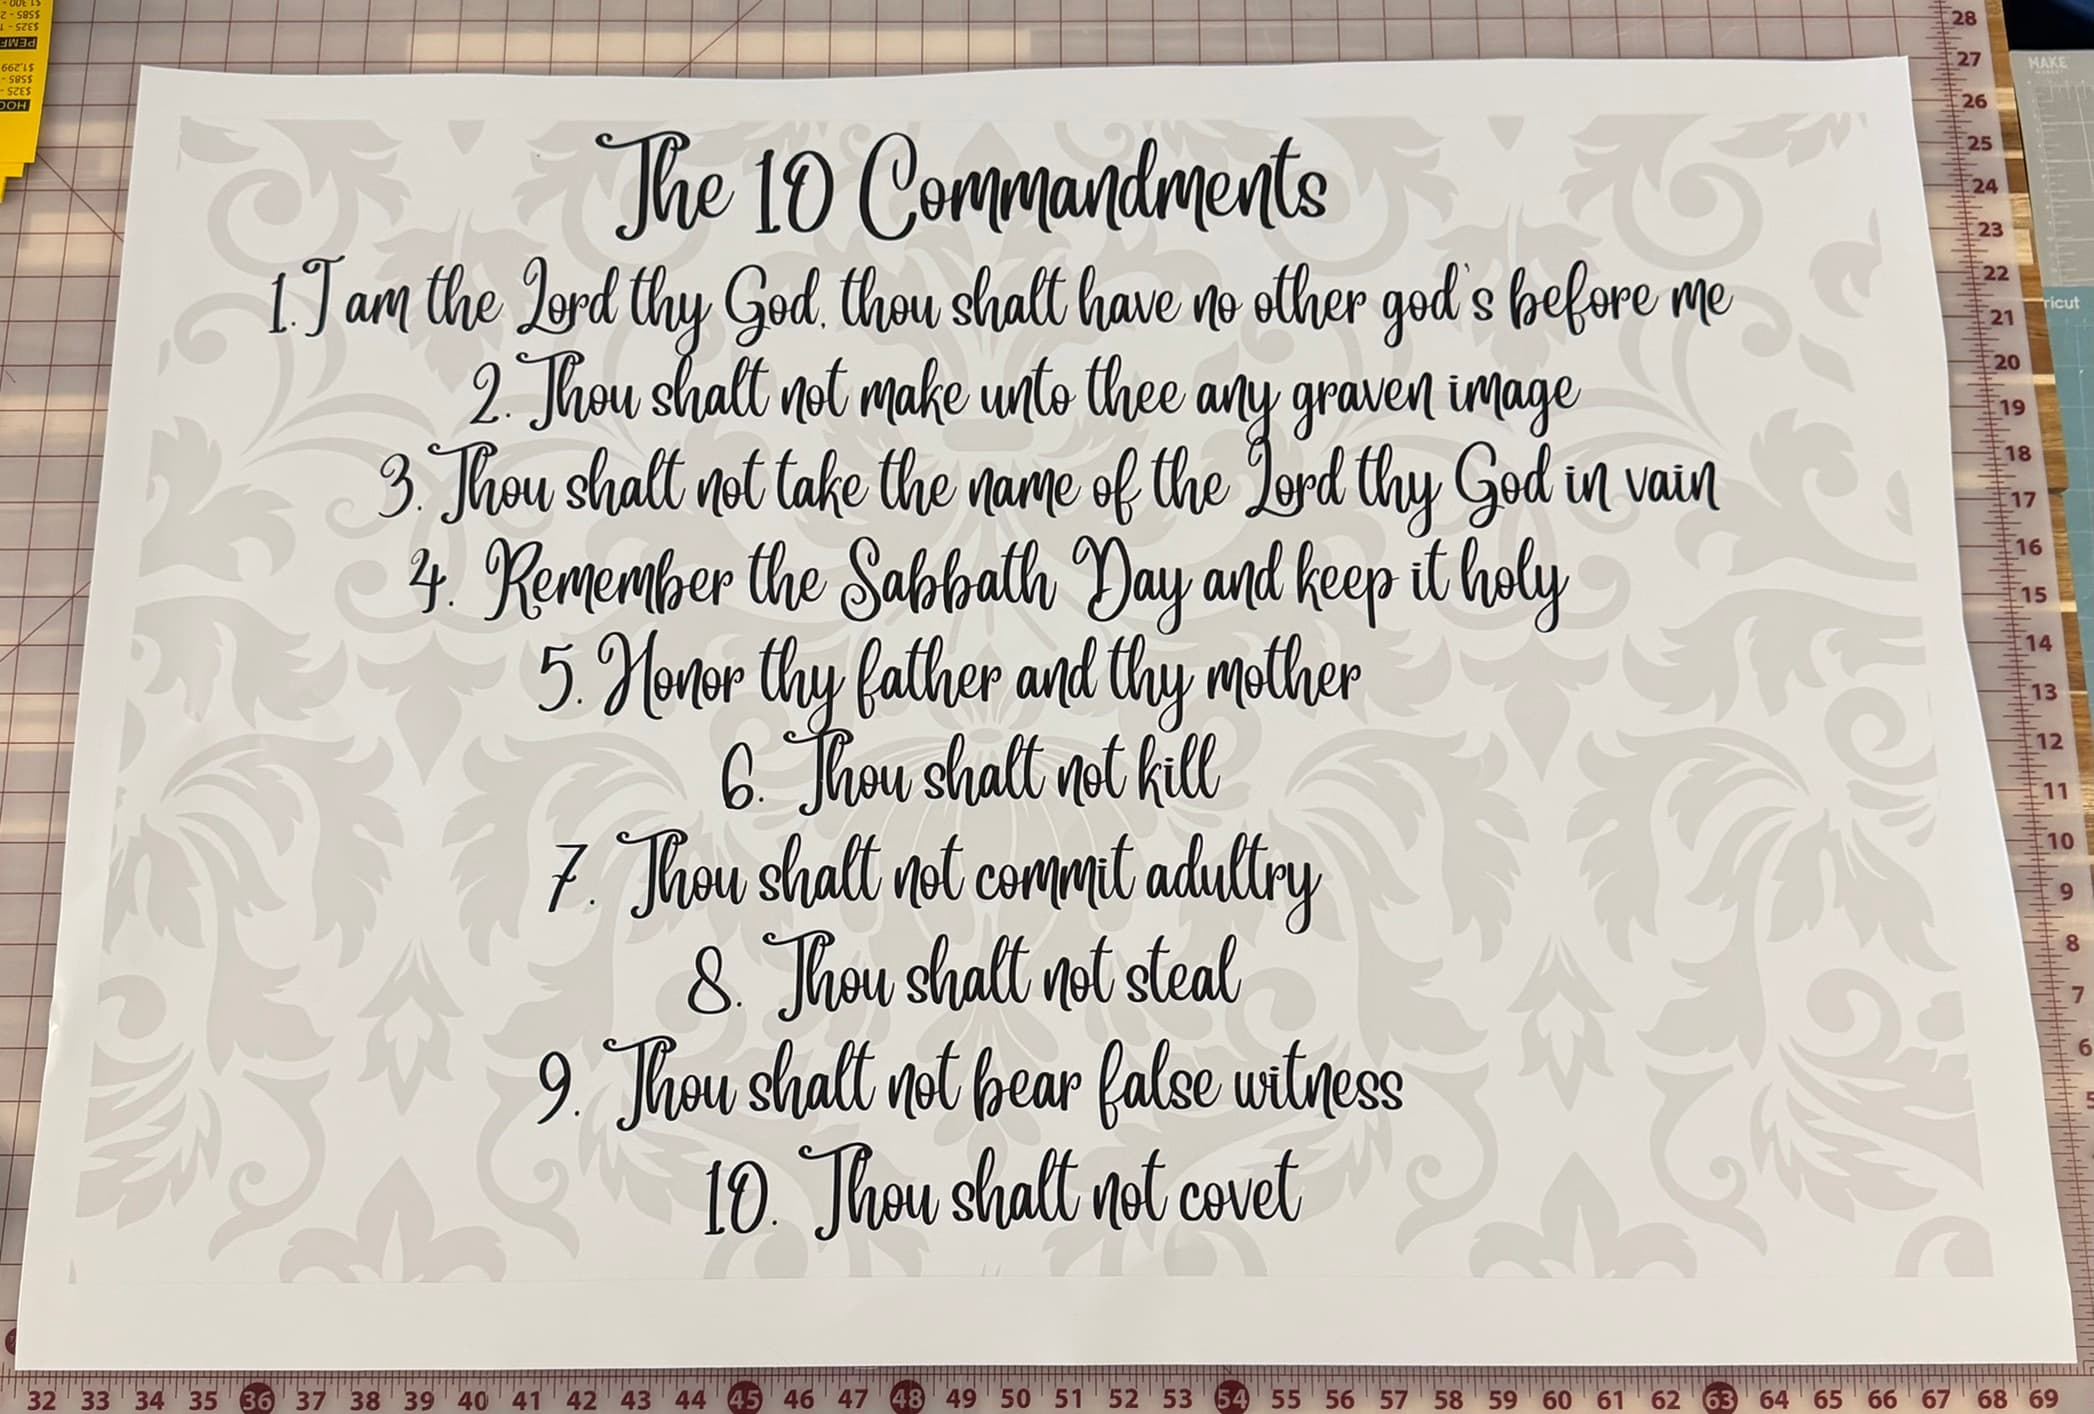 The 10 Commandments
1. I am the Lord thy God, thou shalt have no other god's before me
2. Thou shalt not make unto thee any graven image
3. Thou shalt not take the name of the Lord thy God in vain
4. Remember the Sabbath Day and keep it holy
5. Honor thy father and thy mother
6. Thou shalt not kill
7. Thou shalt not commit adultry
8. Thou shalt not steal
9. Thou shalt not bear false witness
10. Thou shalt not covet
$1,300
$585 - 2
$325 - 1
PEMF
$1,299
$585 -
$325 -
HOO
MAKE
MARKET
ricut
28
27
26
25
24
23
22
21
20
19
18
17
16
15
14
13
12
11
10
9
8
7
6
5
32 33 34 35 36 37 38 39 40 41 42 43 44 45 46 47 48 49 50 51 52 53 54 55 56 57 58 59 60 61 62 63 64 65 66 67 68 69